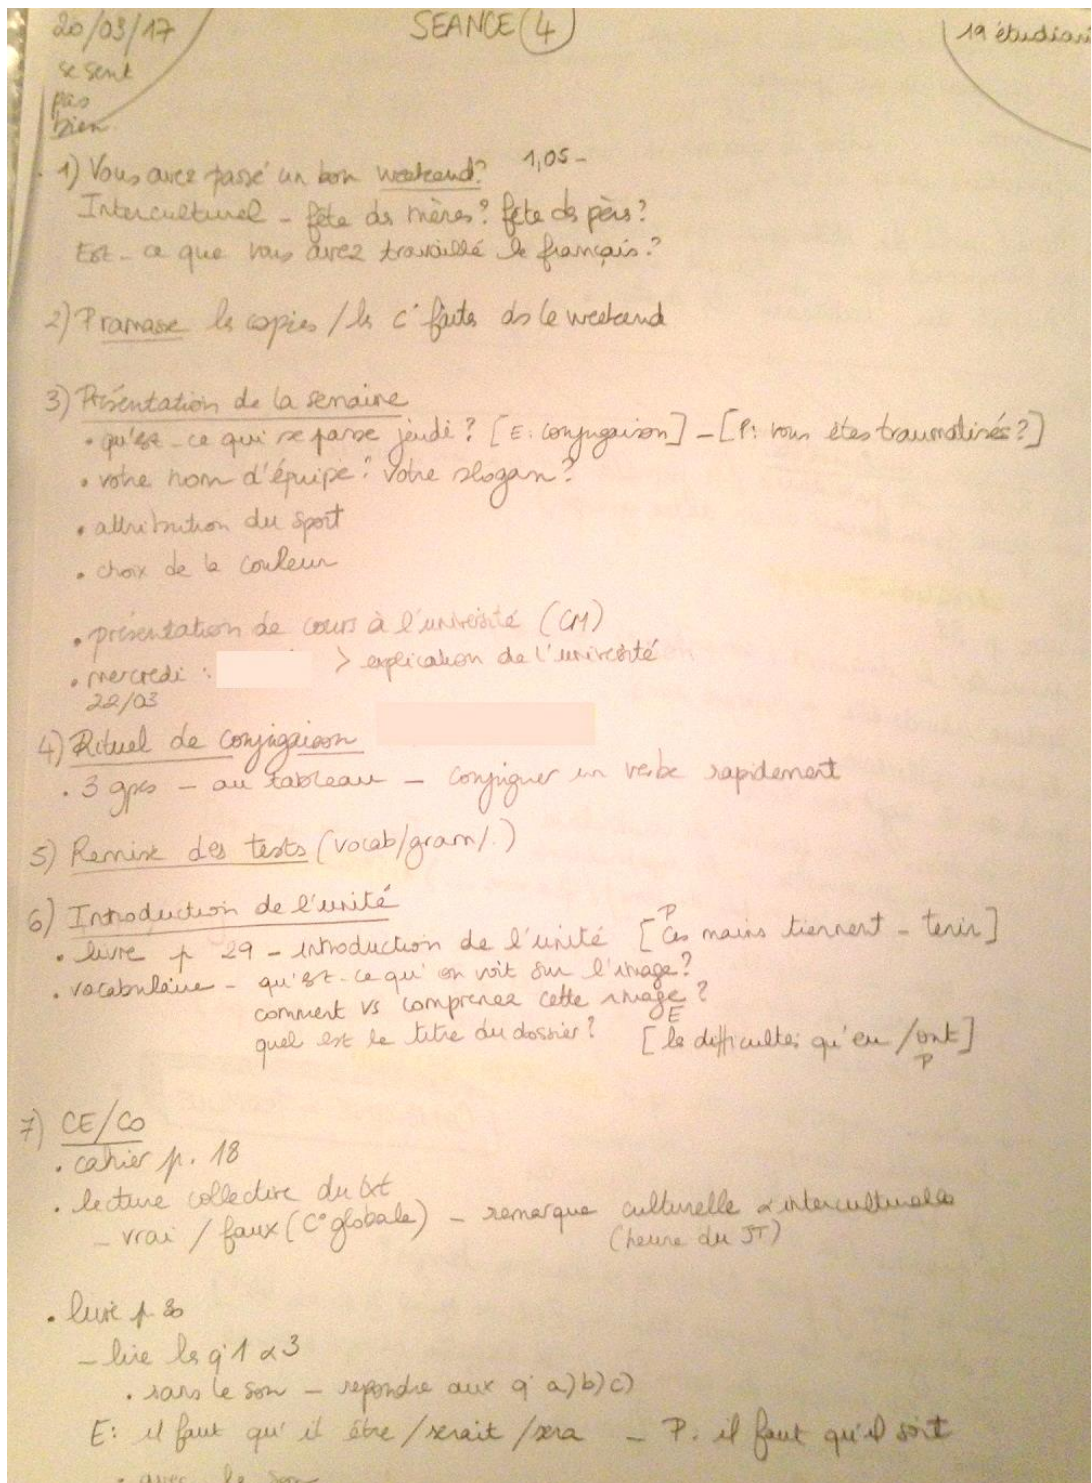 20/03/17
SEANCE 4
19 étudian
se sent
pas
bien
1) Vous avez passé un bon weekend? 1,05 -
Interculturel - fête ds mères? fête ds pères?
Est-ce que vous avez travaillé le français?
2) P ramasse ls copies / ls c° faits ds le weekend
3) Présentation de la semaine
• qu'est-ce qui se passe jeudi? [E: conjugaison] - [P: vous êtes traumatisés?]
• votre nom d'équipe? votre slogan?
• attribution du sport
• choix de la couleur
• présentation de cours à l'université (CM)
• mercredi : > explication de l'université
22/03
4) Rituel de conjugaison
. 3 gpes - au tableau - conjuguer un verbe rapidement
5) Remise des tests (vocab/gram/.)
6) Introduction de l'unité
• livre p 29 - introduction de l'unité [P Ces mains tiennent - tenir]
• vocabulaire - qu'est-ce qu'on voit sur l'image?
comment vs comprenez cette image?
quel est le titre du dossier? [E les difficultés qu'eu / ont P]
7) CE/CO
. cahier p. 18
. lecture collective du txt
- vrai / faux (C° globale) - remarque culturelle & interculturelle
(heure du JT)
• livre p 30
- lire ls q° 1 & 3
. sans le son - répondre aux q° a) b) c)
E: il faut qu'il être / serait / sera - P: il faut qu'il soit
• avec le son